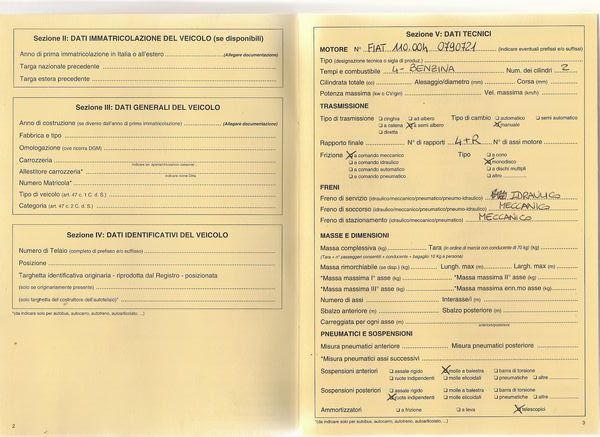 Sezione II: DATI IMMATRICOLAZIONE DEL VEICOLO (se disponibili)
Anno di prima immatricolazione in Italia o all'estero (Allegare documentazione)
Targa nazionale precedente
Targa estera precedente
Sezione III: DATI GENERALI DEL VEICOLO
Anno di costruzione (se diverso dall'anno di prima immatricolazione) (Allegare documentazione)
Fabbrica e tipo
Omologazione (ove ricorra DGM)
Carrozzeria
Allestitore carrozzeria*
indicare nome Ditta
Numero Matricola*
Tipo di veicolo (art. 47 c. 1 C. d. S.)
Categoria (art. 47 c. 2 C. d. S.)
Sezione IV: DATI IDENTIFICATIVI DEL VEICOLO
Numero di Telaio (completo di prefisso e/o suffisso)
Posizione
Targhetta identificativa originaria - riprodotta dal Registro - posizionata
(solo se originariamente presente)
(solo targhetta del costruttore dell'autotelaio)*
*(da indicare solo per autobus, autocarro, autotreno, autoarticolato, ...)
2
Sezione V: DATI TECNICI
MOTORE N° FIAT 110.004 0790721 (indicare eventuali prefissi e/o suffissi)
Tipo (designazione tecnica o sigla di produz.)
Tempi e combustibile 4 - BENZINA Num. dei cilindri 2
Cilindrata totale (cc) Alesaggio/diametro (mm) Corsa (mm)
Potenza massima (kw o CV/giri) Vel. massima (km/h)
TRASMISSIONE
Tipo di trasmissione cinghia ad albero Tipo di cambio automatico semi automatico
a catena a semi albero manuale
diretta
Rapporto finale N° di rapporti 4+R N° di assi motore
Frizione a comando meccanico Tipo a cono
a comando idraulico monodisco
a comando automatico a dischi multipli
a comando pneumatico altro
FRENI
Freno di servizio (idraulico/meccanico/pneumatico/pneumo-idraulico) IDRAULICO
Freno di soccorso (idraulico/meccanico/pneumatico/pneumo-idraulico) MECCANICO
Freno di stazionamento (idraulico/meccanico/pneumatico) MECCANICO
MASSE E DIMENSIONI
Massa complessiva (kg) Tara (in ordine di marcia con conducente di 70 kg) (kg)
(Tara + n° passeggeri consentiti + conducente + bagaglio 10 Kg a persona)
Massa rimorchiabile (se disp.) (kg) Lungh. max (m) Largh. max (m)
*Massa massima I° asse (kg) *Massa massima II° asse (kg)
*Massa massima III° asse (kg) *Massa massima enn.mo asse (kg)
Numero di assi Interasse/i (m)
Sbalzo anteriore (m) Sbalzo posteriore (m)
Carreggiata per ogni asse (m)
anteriori/posteriore
PNEUMATICI E SOSPENSIONI
Misura pneumatici anteriore Misura pneumatici posteriore
*Misura pneumatici assi successivi
Sospensioni anteriori assale rigido molle a balestra barra di torsione
ruote indipendenti molle elicoidali pneumatiche altre
Sospensioni posteriori assale rigido molle a balestra barra di torsione
ruote indipendenti molle elicoidali pneumatiche altro
Ammortizzatori a frizione a leva telescopici
*(da indicare solo per autobus, autocarro, autotreno, autoarticolato, ...)
3